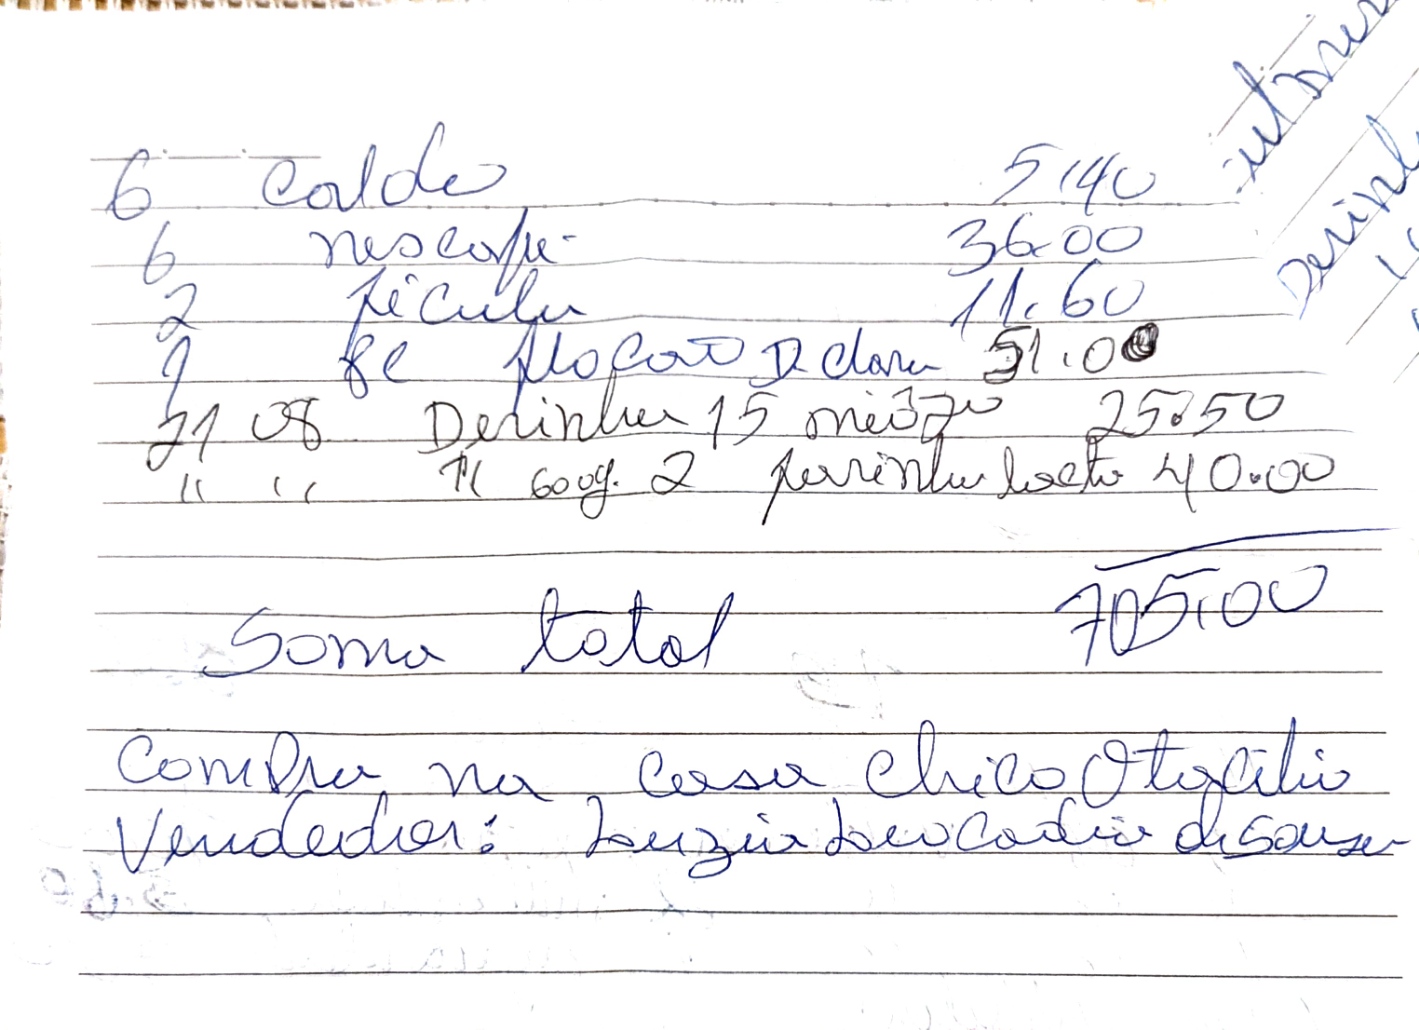 6 Caldo 5.40
6 nescafé 36.00
2 fécula 11.60
flocão D clara 51.00
21 08 Derinha 15 25.50
" " 600g. 2 farinha lacta 40.00
Soma total 705.00
Compra na casa Chico Otacilio
Vendedor: Luzia Leocadia de Sousa